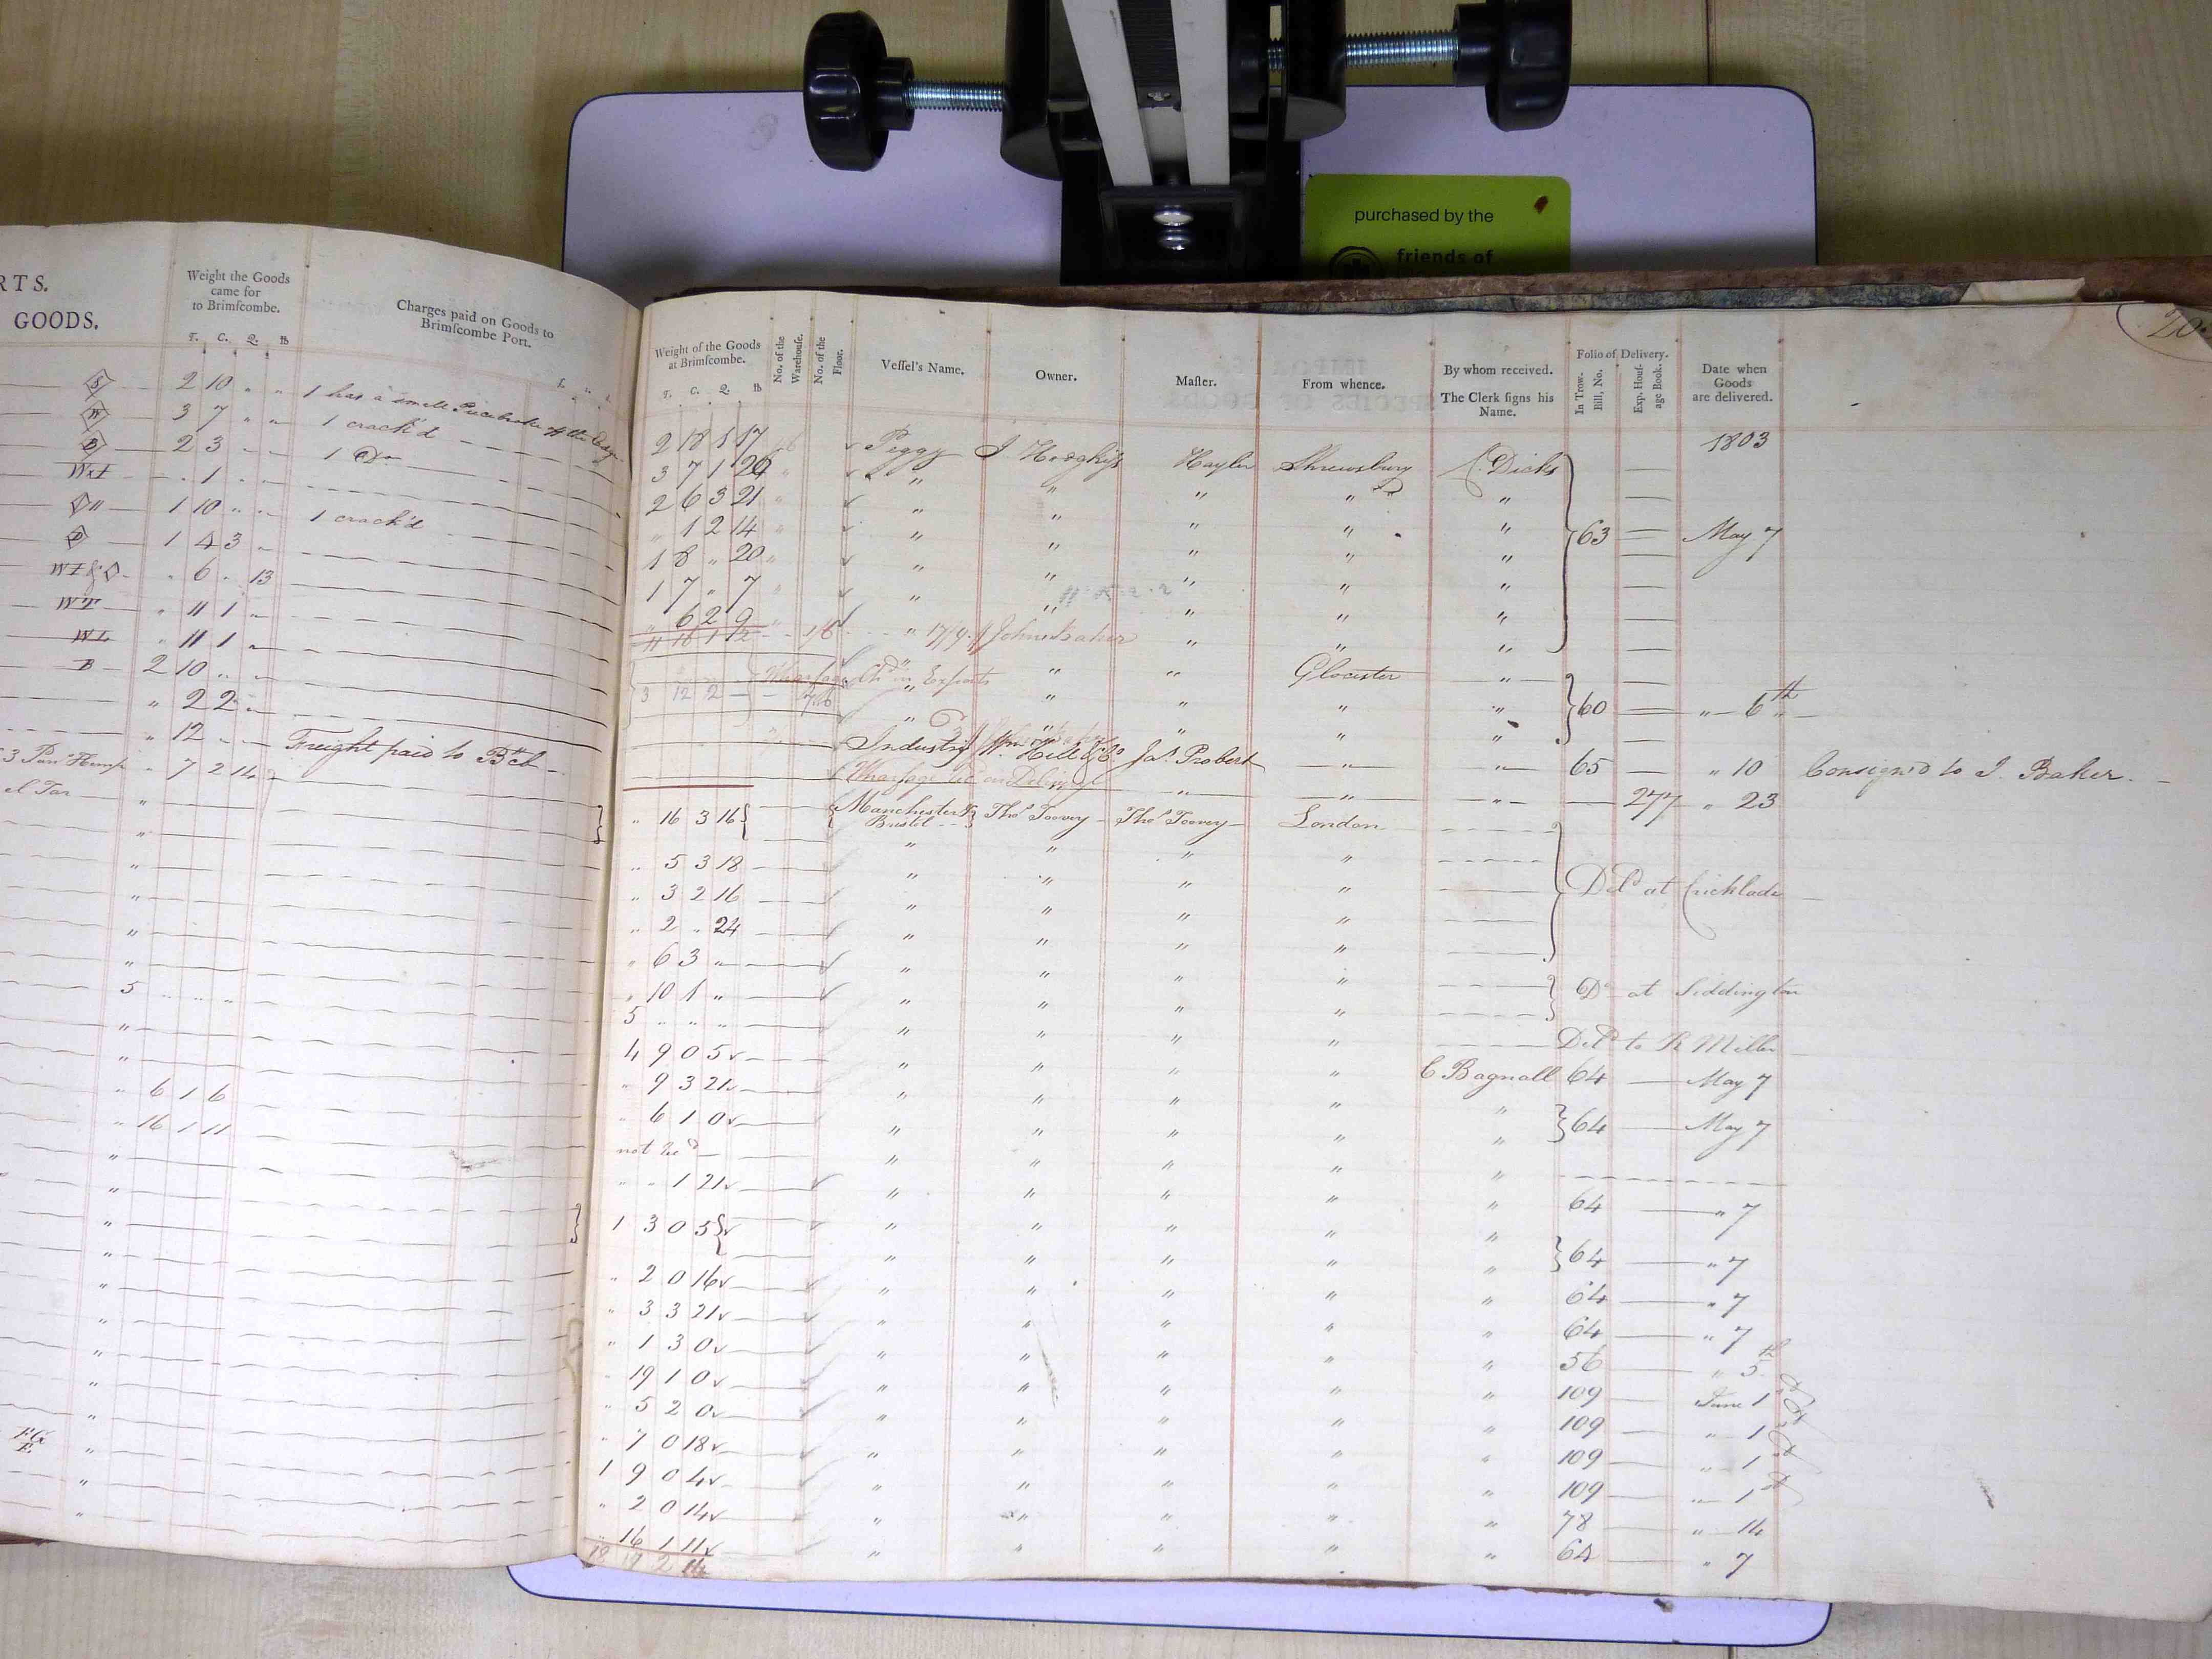 purchased by the
friends of
RTS.
GOODS.
Weight the Goods
came for
to Brimſcombe.
T. C. Q. lb
Charges paid on Goods to
Brimſcombe Port.
S 2 10 " " 1 has a small Piece broke off the Edge
W 3 7 " " 1 crack'd
B 2 3 1 Do
" 1 "
1 10 " " 1 crack'd
1 4 3 "
" 6 " 13
WT " 11 1 "
WL " 11 1 "
B 2 10 " "
" 2 2 "
" 12 " " Freight paid to Bch
" 7 2 14
el Tar "
5 " " "
" 6 1 6
" 16 1 11
Weight of the Goods
at Brimſcombe.
T. C. Q. lb
No. of the
Warehouſe.
No. of the
Floor.
Veſſel's Name.
Owner.
Maſter.
From whence.
By whom received.
The Clerk ſigns his
Name.
Folio of Delivery.
In Trow.
Bill, No.
Exp. Houſ-
age Book.
Date when
Goods
are delivered.
20
1803
2 18 1 17 Peggy Shrewsbury Dicks
3 7 1 26 " " " " "
2 6 3 21 " " " " "
" 1 2 14 " " " " " 63 May 7
1 8 " 20 " " " " "
1 7 " 7 " " " " "
" 6 2 9 " " " " "
11 16 1 " 17/9 John Baker " " "
Wharfage Chd in Exports " " Glocester "
3 12 2 7/6 " " " " " 60 " 6th
Industry Wm Hill & Co Jas Probert " 65 " 10 Consign'd to J. Baker.
" " " 277 " 23
" 16 3 16 Manchester & Bristol Thos Toovey Thos Toovey London
" 5 3 18 " " " "
" 3 2 16 " " " " Deld at Cricklade
" 2 " 24 " " " "
" 6 3 " " " " "
" 10 1 " " " " " Do at Siddington
5 " " " " " " "
4 9 0 5 " " " " Deld to R Miller
" 9 3 21 " " " " C Bagnall 64 May 7
" 6 1 0 " " " " " 64 May 7
not " " " " "
" " 1 21 " " " " " 64 " 7
1 3 0 5 " " " " " 64 " 7
" 2 0 16 " " " " " 64 " 7
" 3 3 21 " " " " " 64 " 7
" 1 3 0 " " " " " 56 " 5th
" 19 1 0 " " " " " 109 June 1st
" 5 2 0 " " " " " 109 " 1st
" 7 0 18 " " " " " 109 " 1
1 9 0 4 " " " " " 109 " 1st
" 2 0 14 " " " " " 78 " 14
" 16 1 11 " " " " " 64 " 7